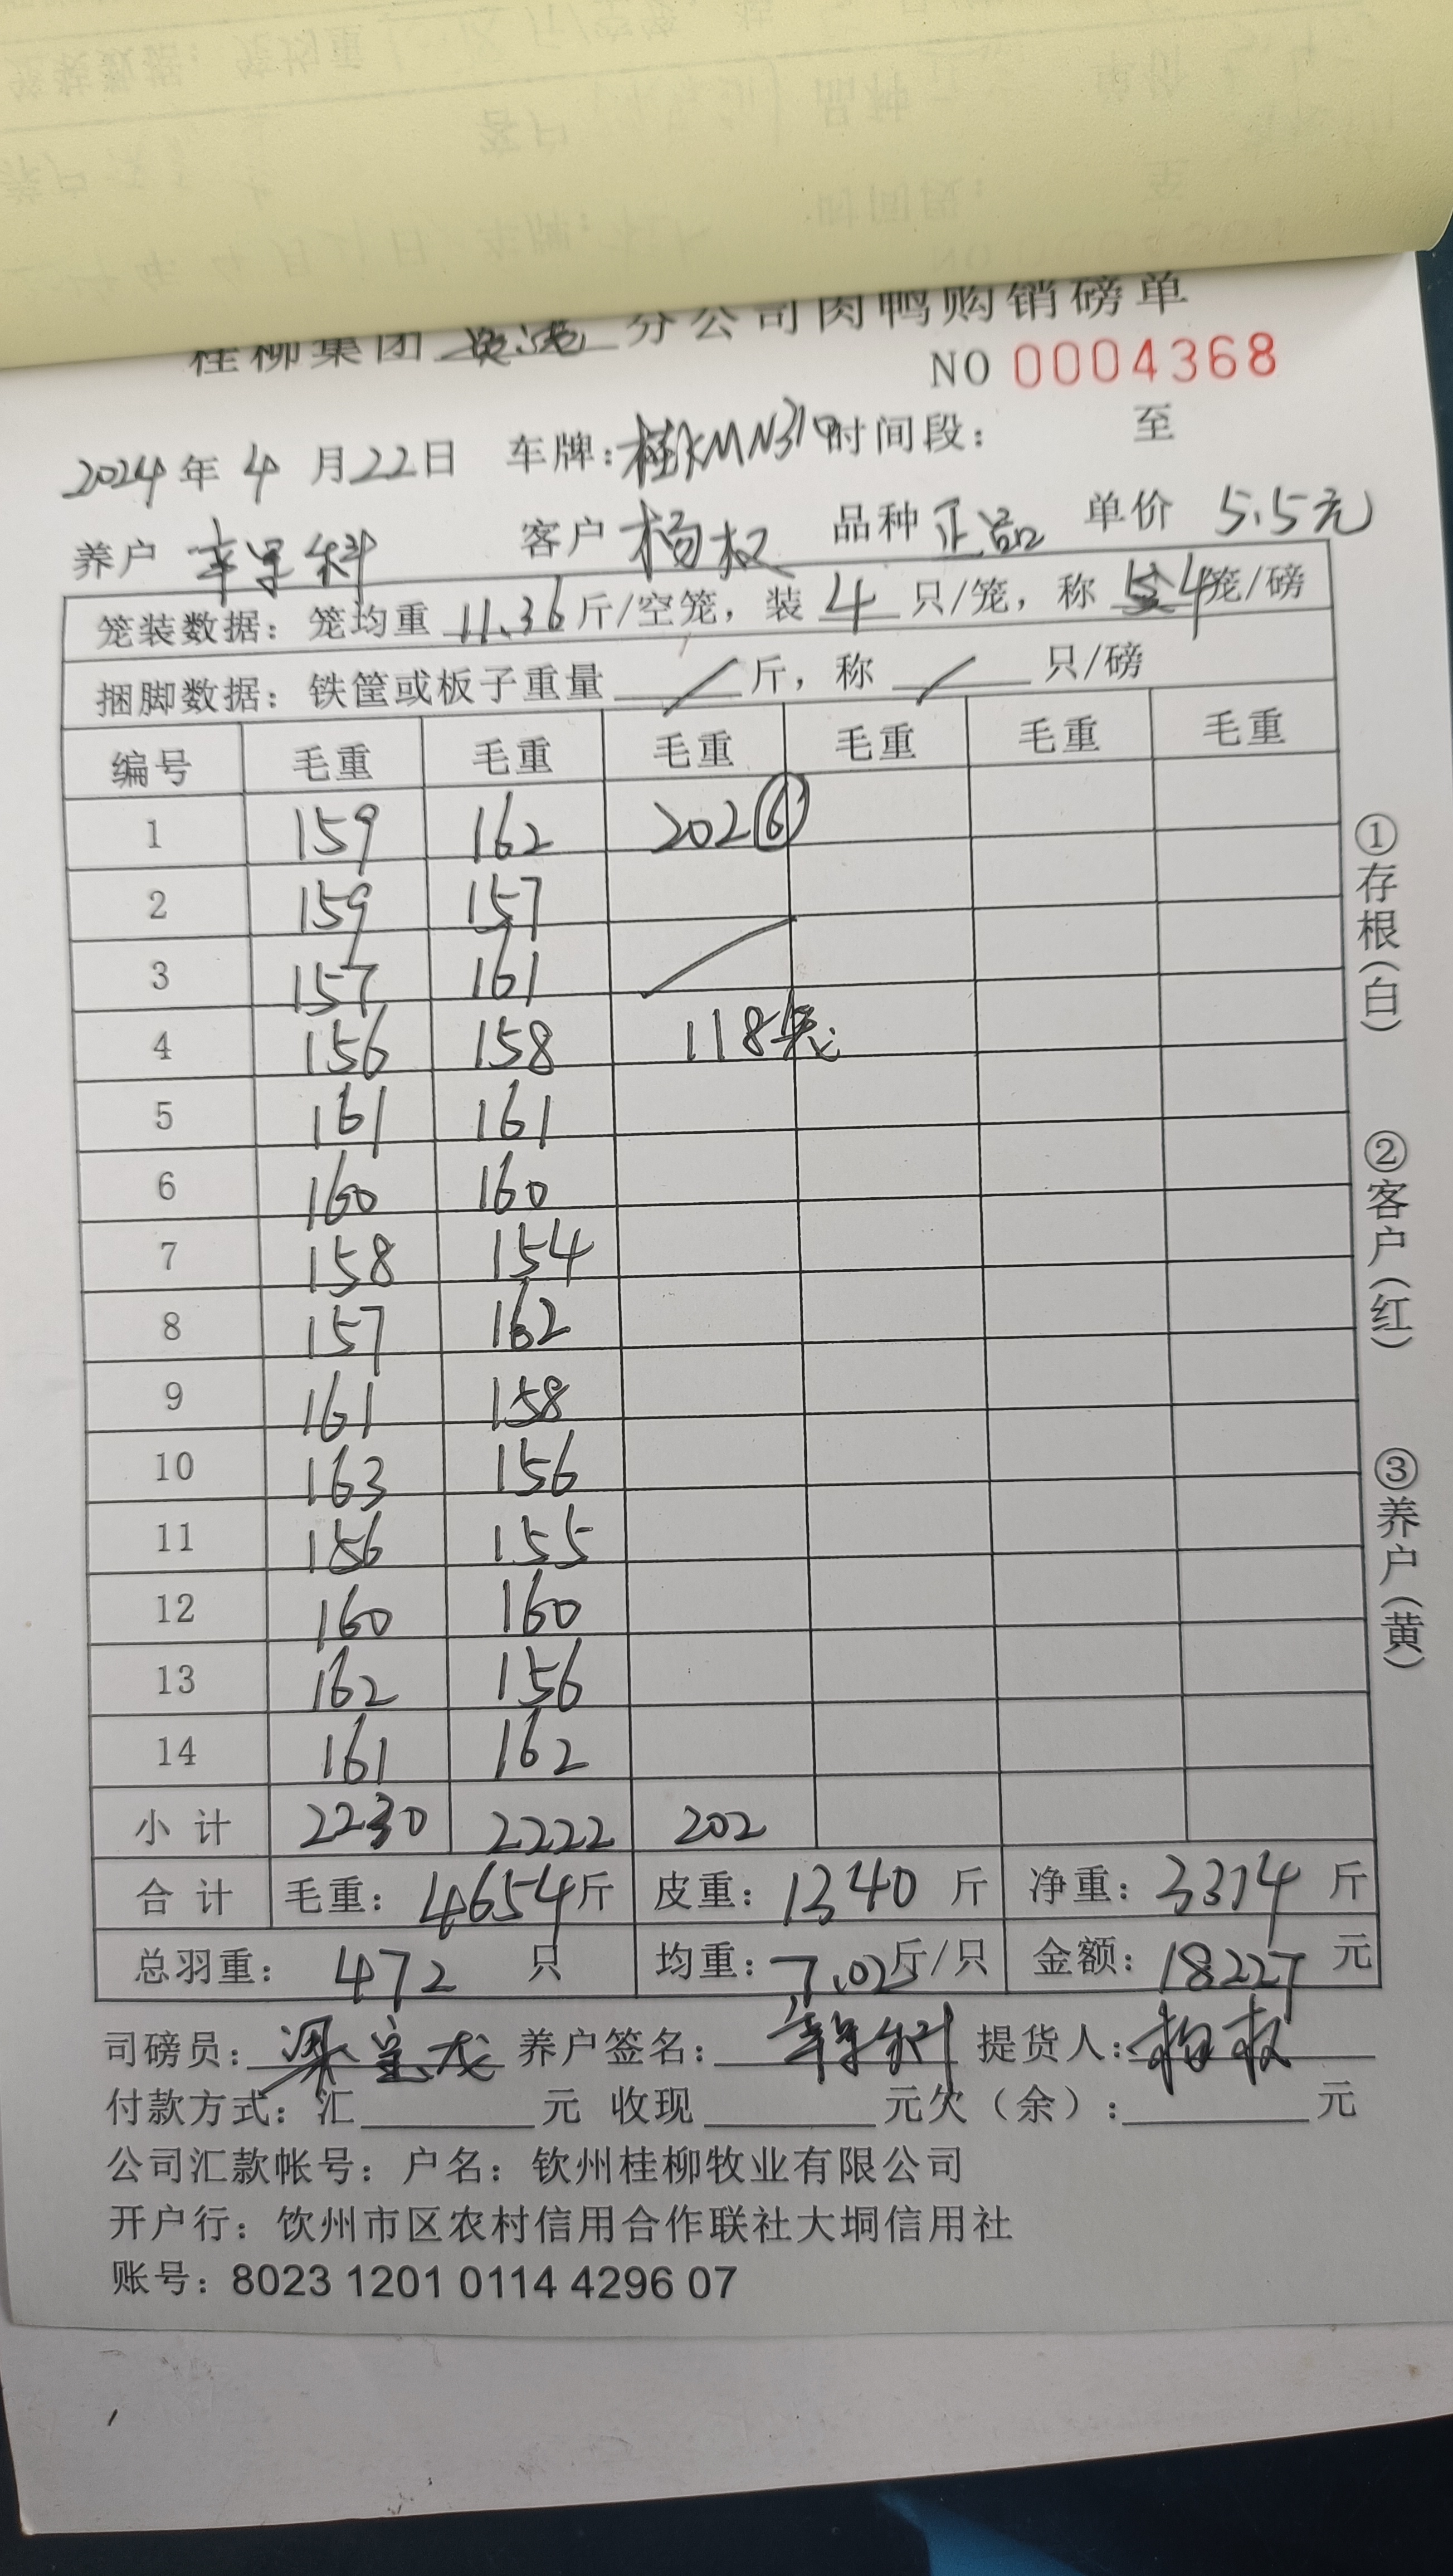 桂柳集团 分公司肉鸭购销磅单
NO 0004368
2024年 4月22日 车牌:桂KMN310 时间段: 至
养户 客户 杨权 品种 正品 单价 5.5元
笼装数据: 笼均重 11.36 斤/空笼, 装 4 只/笼, 称 4 笼/磅
捆脚数据: 铁筐或板子重量 / 斤, 称 / 只/磅
编号 毛重 毛重 毛重 毛重 毛重 毛重
1 159 162 202 ⑥
2 159 157
3 157 161
4 156 158 118笼
5 161 161
6 160 160
7 158 154
8 157 162
9 161 158
10 163 156
11 156 155
12 160 160
13 162 156
14 161 162
小计 2230 2222 202
合计 毛重: 4654 斤 皮重: 1340 斤 净重: 3314 斤
总羽重: 472 只 均重: 7.02 斤/只 金额: 18227 元
司磅员: 养户签名: 提货人: 杨权
付款方式: 汇 元 收现 元欠(余): 元
公司汇款帐号: 户名: 钦州桂柳牧业有限公司
开户行: 钦州市区农村信用合作联社大垌信用社
账号: 8023 1201 0114 4296 07
①存根(白)
②客户(红)
③养户(黄)